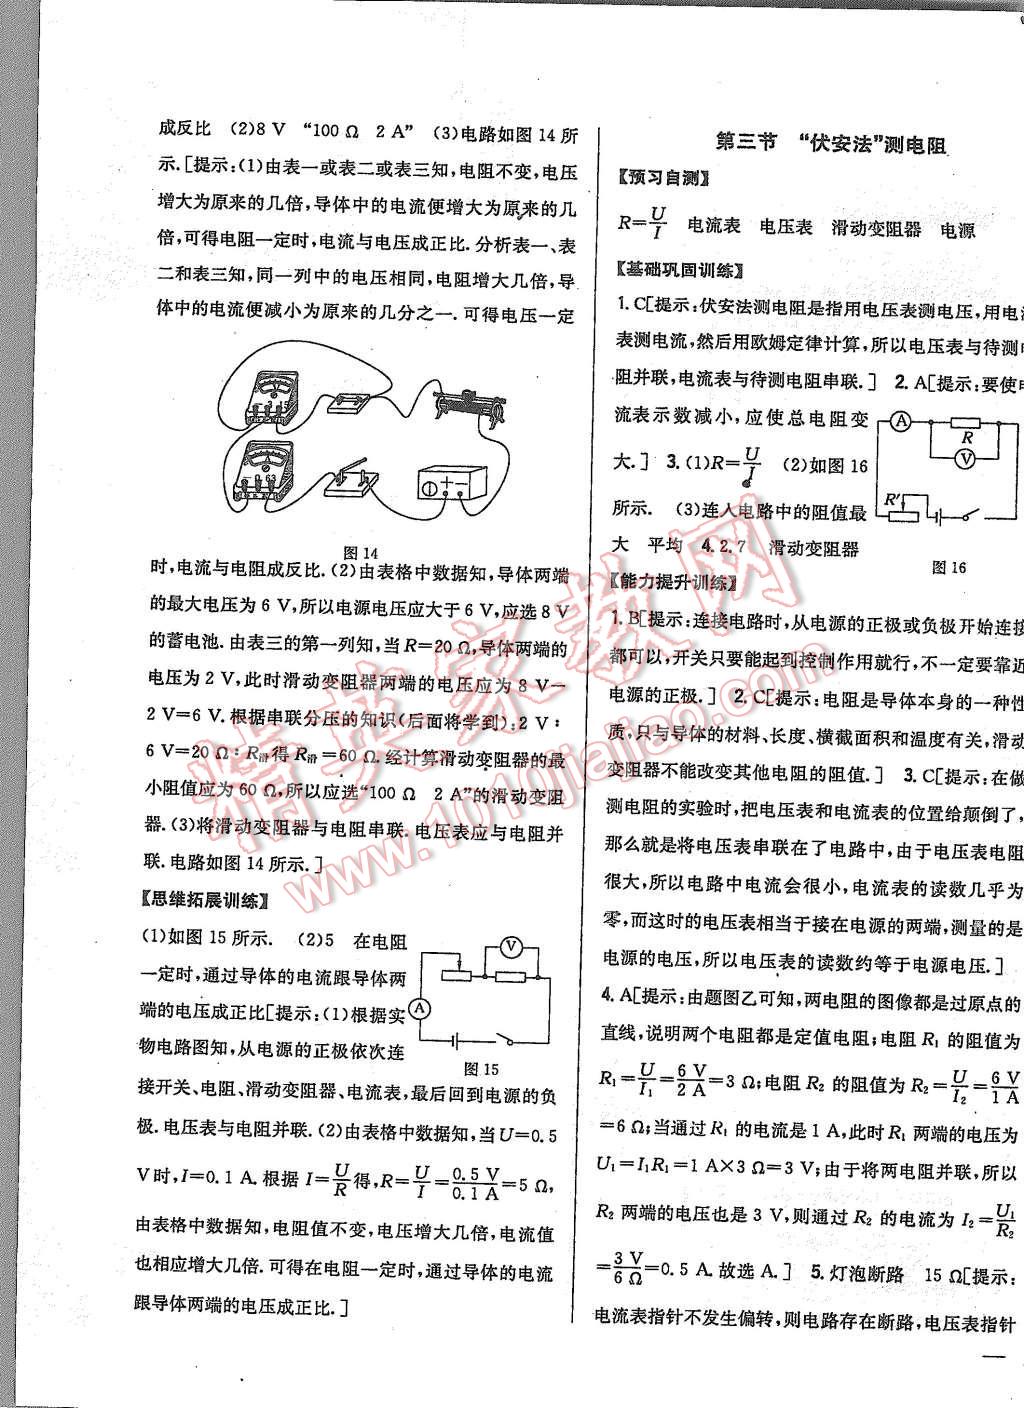 成反比　(2)8 V　“100 Ω　2 A”　(3)电路如图 14 所
示.[提示:(1)由表一或表二或表三知,电阻不变,电压
增大为原来的几倍,导体中的电流便增大为原来的几
倍,可得电阻一定时,电流与电压成正比.分析表一、表
二和表三知,同一列中的电压相同,电阻增大几倍,导
体中的电流便减小为原来的几分之一.可得电压一定
图 14
时,电流与电阻成反比.(2)由表格中数据知,导体两端
的最大电压为 6 V,所以电源电压应大于 6 V,应选 8 V
的蓄电池.由表三的第一列知,当 R=20 Ω,导体两端的
电压为 2 V,此时滑动变阻器两端的电压应为 8 V−
2 V=6 V.根据串联分压的知识(后面将学到):2 V∶
6 V=20 Ω∶R滑得 R滑=60 Ω.经计算滑动变阻器的最
小阻值应为 60 Ω,所以应选“100 Ω　2 A”的滑动变阻
器.(3)将滑动变阻器与电阻串联.电压表应与电阻并
联.电路如图 14 所示.]
【思维拓展训练】
(1)如图 15 所示.　(2)5　在电阻
一定时,通过导体的电流跟导体两
端的电压成正比[提示:(1)根据实
物电路图知,从电源的正极依次连
V
A
图 15
接开关、电阻、滑动变阻器、电流表,最后回到电源的负
极.电压表与电阻并联.(2)由表格中数据知,当 U=0.5
V 时,I=0.1 A.根据 I=U/R 得,R=U/I=0.5 V/0.1 A=5 Ω,
由表格中数据知,电阻值不变,电压增大几倍,电流值
也相应增大几倍.可得在电阻一定时,通过导体的电流
跟导体两端的电压成正比.]
第三节　“伏安法”测电阻
【预习自测】
R=U/I　电流表　电压表　滑动变阻器　电源
【基础巩固训练】
1. C[提示:伏安法测电阻是指用电压表测电压,用电流
表测电流,然后用欧姆定律计算,所以电压表与待测电
阻并联,电流表与待测电阻串联.]　2. A[提示:要使电
流表示数减小,应使总电阻变
大.]　3.(1)R=U/I　(2)如图 16
所示.　(3)连入电路中的阻值最
大　平均　4. 2.7　滑动变阻器
A
R
V
R′
图 16
【能力提升训练】
1. B[提示:连接电路时,从电源的正极或负极开始连接
都可以,开关只要能起到控制作用就行,不一定要靠近
电源的正极.]　2. C[提示:电阻是导体本身的一种性
质,只与导体的材料、长度、横截面积和温度有关,滑动
变阻器不能改变其他电阻的阻值.]　3. C[提示:在做
测电阻的实验时,把电压表和电流表的位置给颠倒了,
那么就是将电压表串联在了电路中,由于电压表电阻
很大,所以电路中电流会很小,电流表的读数几乎为
零,而这时的电压表相当于接在电源的两端,测量的是
电源的电压,所以电压表的读数约等于电源电压.]
4. A[提示:由题图乙可知,两电阻的图像都是过原点的
直线,说明两个电阻都是定值电阻;电阻 R₁ 的阻值为
R₁=U/I₁=6 V/2 A=3 Ω;电阻 R₂ 的阻值为 R₂=U/I₂=6 V/1 A
=6 Ω;当通过 R₁ 的电流是 1 A,此时 R₁ 两端的电压为
U₁=I₁R₁=1 A×3 Ω=3 V;由于将两电阻并联,所以
R₂ 两端的电压也是 3 V,则通过 R₂ 的电流为 I₂=U₁/R₂
=3 V/6 Ω=0.5 A.故选 A.]　5. 灯泡断路　15 Ω[提示:
电流表指针不发生偏转,则电路存在断路,电压表指针
精英家教网
www.1010jiajiao.com